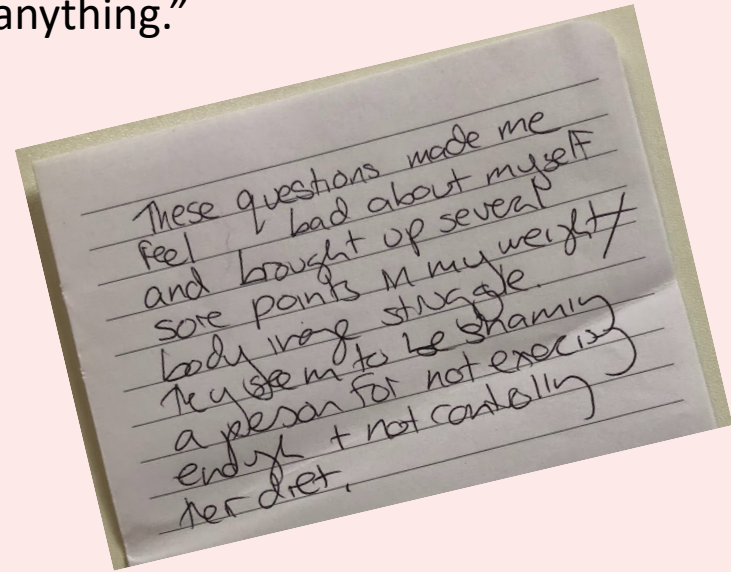 anything.”
These questions made me
feel bad about myself
and brought up several
sore points in my weight/
body image struggle.
They seem to be shaming
a person for not exercising
enough + not controlling
her diet.